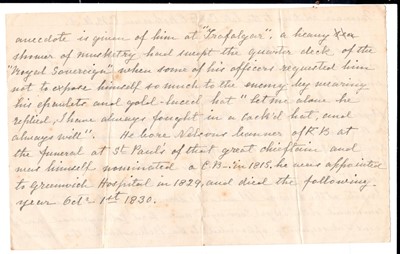 anecdote is given of him at "Trafalgar", a heavy
shower of musketry had swept the quarter deck of the
"Royal Sovereign" when some of his officers requested him
not to expose himself so much to the enemy by wearing
his epaulets and gold-laced hat "Let me alone he
replied, I have always fought in a cock'd hat, and
always will". He bore Nelsons banner of K B at
the funeral at St Paul's of that great chieftain and
was himself nominated a C.B. in 1815, he was appointed
to Greenwich Hospital in 1829, and died the following
year Octr 1st 1830.